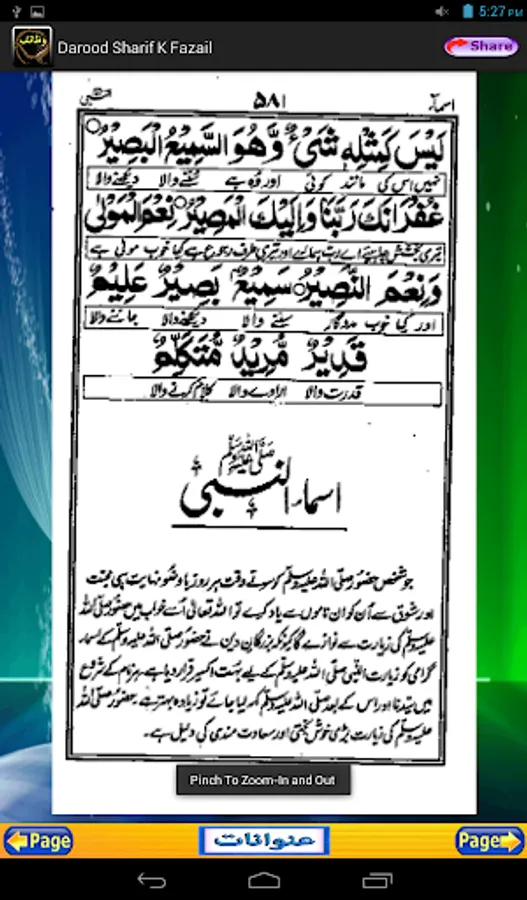 5:27 PM
Darood Sharif K Fazail
Share
اسماء ۵۸۱ النبی
لَیْسَ کَمِثْلِهٖ شَیْءٌ وَّهُوَ السَّمِیْعُ الْبَصِیْرُ
نہیں اس کی مانند کوئی اور وہ ہے سننے والا دیکھنے والا
غُفْرَانَكَ رَبَّنَا وَاِلَیْكَ الْمَصِیْرُ نِعْمَ الْمَوْلٰی
تیری بخشش چاہیے اے رب ہمارے اور تیری طرف رجوع ہے کیا خوب مولیٰ ہے
وَنِعْمَ النَّصِیْرُ سَمِیْعٌ بَصِیْرٌ عَلِیْمٌ
اور کیا خوب مددگار سننے والا دیکھنے والا جاننے والا
قَدِیْرٌ مُّرِیْدٌ مُّتَکَلِّمٌ
قدرت والا ارادے والا کلام کرنے والا
اسماء النبی صلی اللہ علیہ وسلم
جو شخص حضور صلی اللہ علیہ وسلم کو سوتے وقت ہر روز باوضو نہایت ہی محبت
اور شوق سے آن کو ان ناموں سے یاد کرے تو اللہ تعالیٰ اسے خواب میں حضور صلی اللہ
علیہ وسلم کی زیارت سے نوازے گا کیونکہ بزرگان دین نے حضور صلی اللہ علیہ وسلم کے اسماء
گرامی کو زیارت النبی صلی اللہ علیہ وسلم کے لیے بہت اکسیر قرار دیا ہے۔ ہر نام کے شروع
میں سیدنا اور اس کے بعد صلی اللہ علیہ وسلم کہہ لیا جائے تو زیادہ بہتر ہے۔ حضور صلی اللہ
علیہ وسلم کی زیارت بڑی خوش بختی اور سعادت مندی کی دلیل ہے۔
Pinch To Zoom-In and Out
Page عنوانات Page